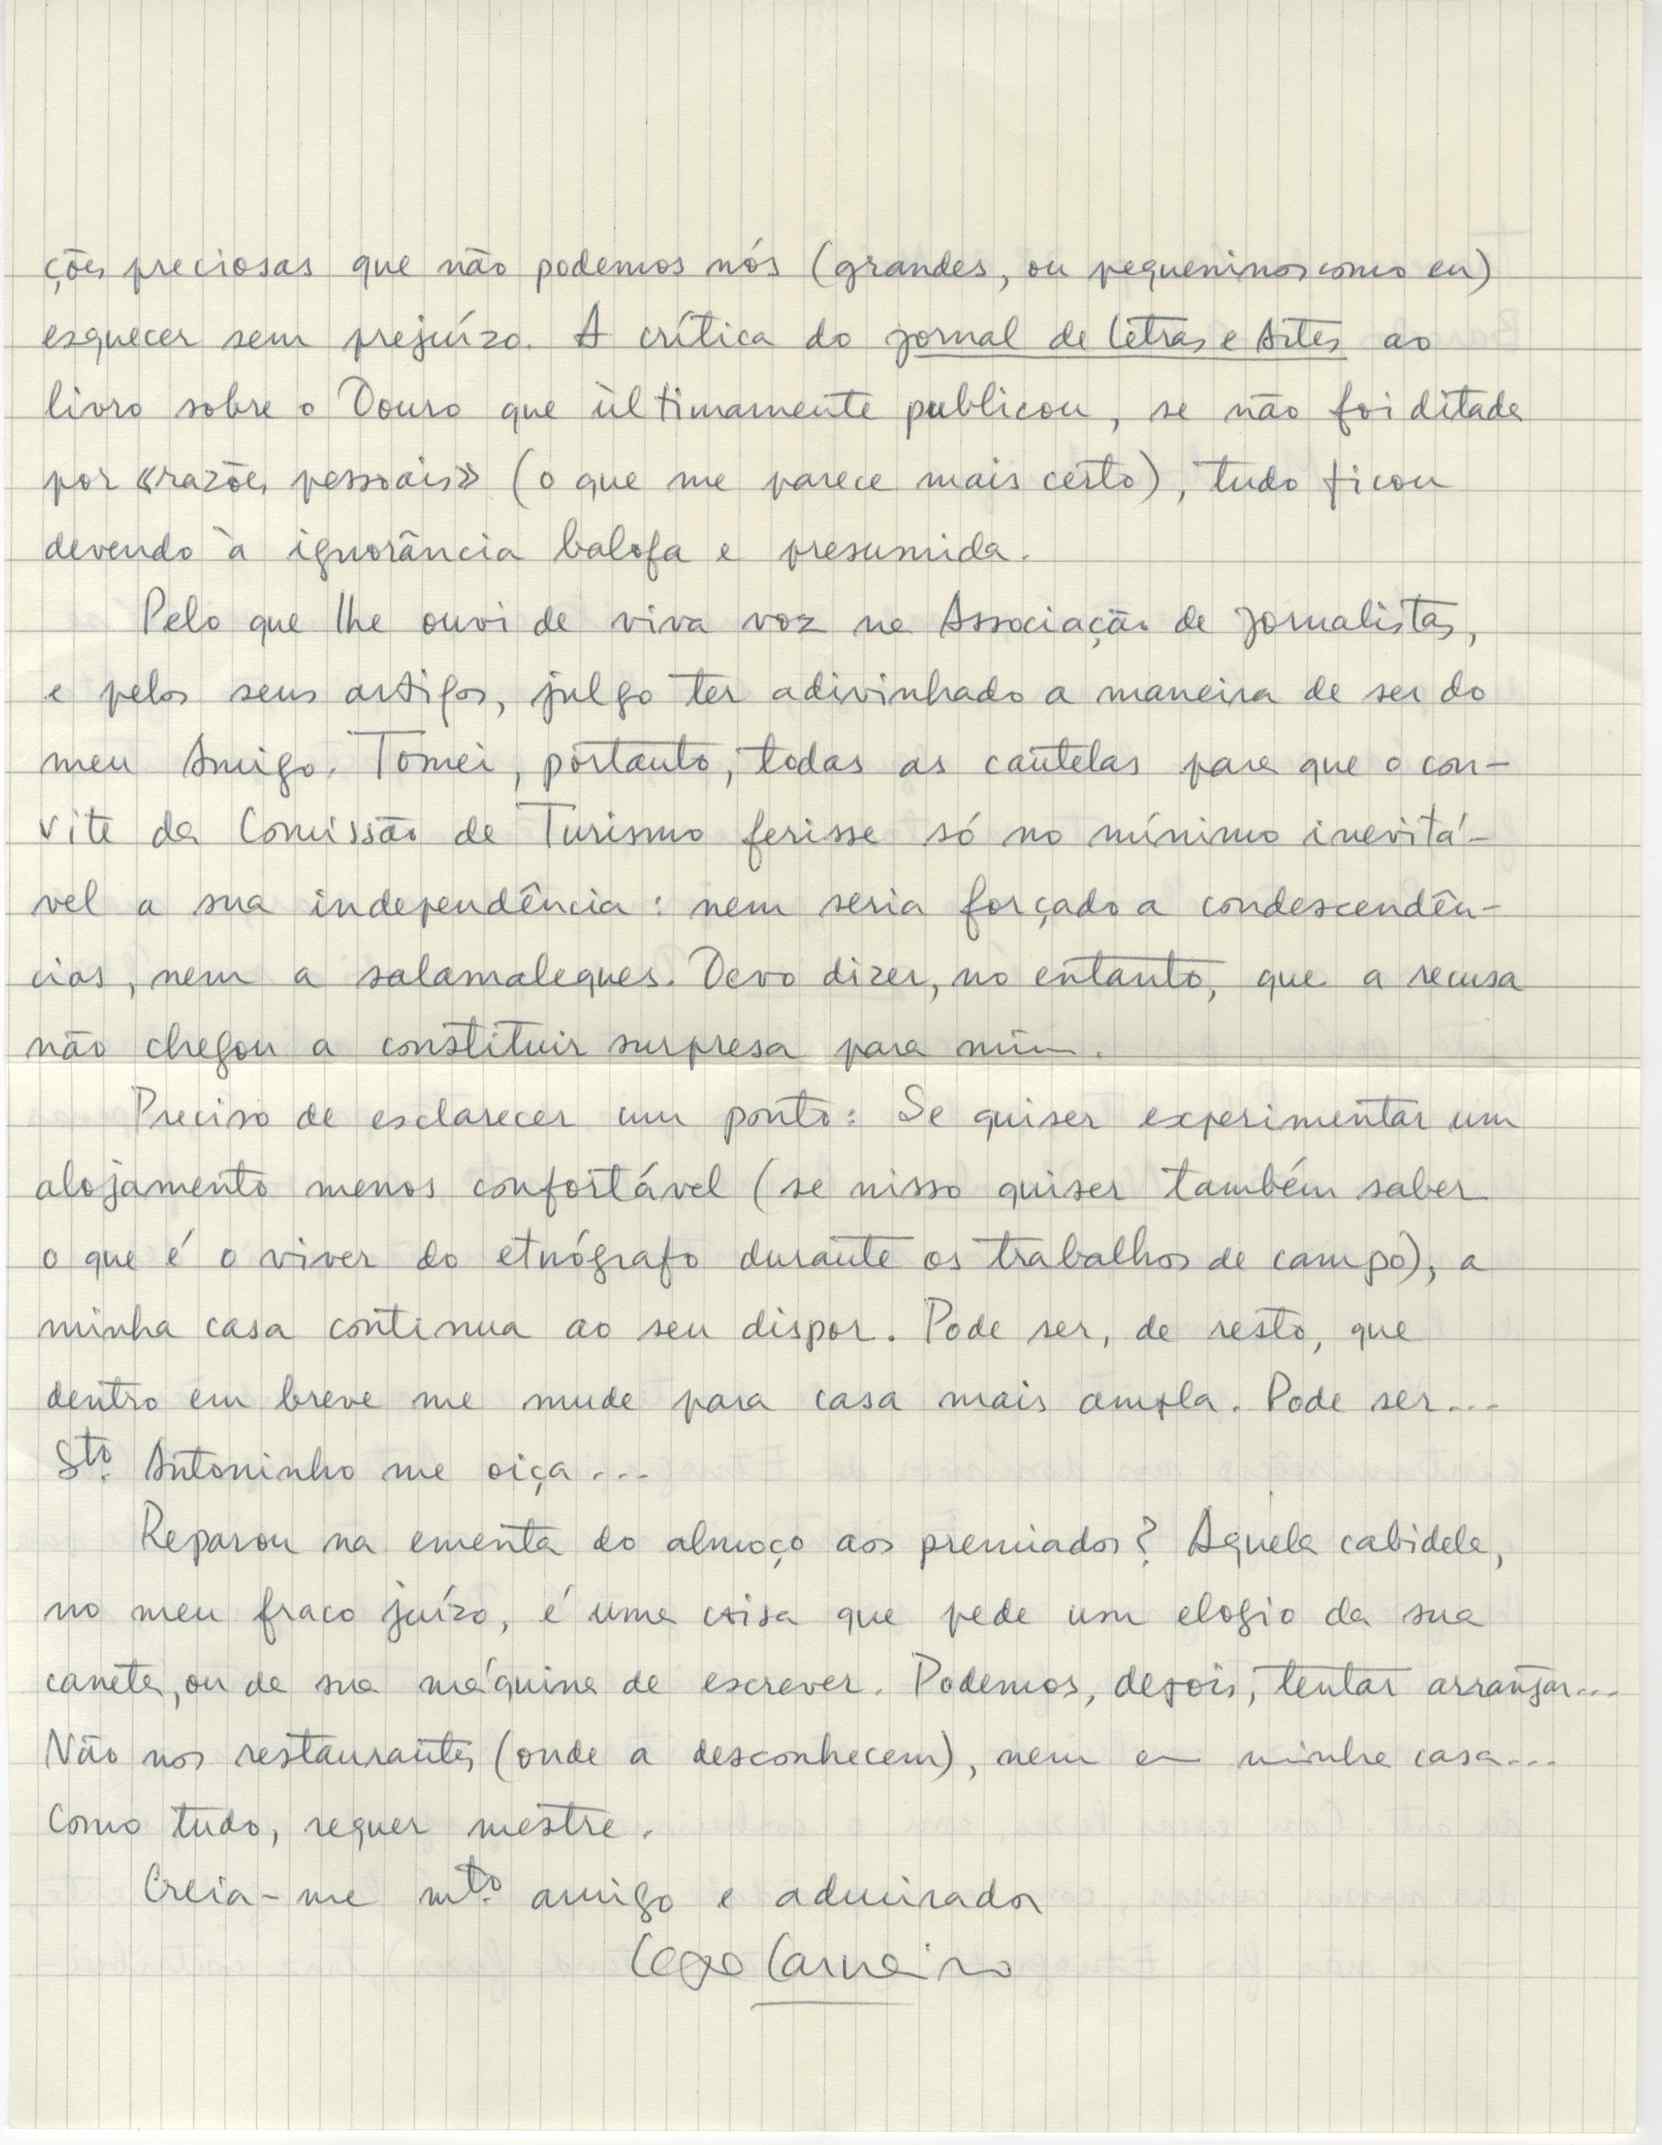 ções preciosas que não podemos nós (grandes, ou pequeninos como eu)
esquecer sem prejuízo. A crítica do Jornal de Letras e Artes ao
livro sobre o Douro que ùltimamente publicou, se não foi ditada
por «razões pessoais» (o que me parece mais certo), tudo ficou
devendo à ignorância balofa e presumida.
Pelo que lhe ouvi de viva voz na Associação de Jornalistas,
e pelos seus artigos, julgo ter adivinhado a maneira de ser do
meu Amigo. Tomei, portanto, todas as cautelas para que o con-
vite da Comissão de Turismo ferisse só no mínimo inevitá-
vel a sua independência: nem seria forçado a condescendên-
cias, nem a salamaleques. Devo dizer, no entanto, que a recusa
não chegou a constituir surpresa para mim.
Preciso de esclarecer um ponto: Se quiser experimentar um
alojamento menos confortável (se nisso quiser também saber
o que é o viver do etnógrafo durante os trabalhos de campo), a
minha casa continua ao seu dispor. Pode ser, de resto, que
dentro em breve me mude para casa mais ampla. Pode ser...
Sto. Antoninho me oiça...
Reparou na ementa do almoço aos premiados? Aquela cabidela,
no meu fraco juízo, é uma coisa que pede um elogio da sua
caneta, ou da sua máquina de escrever. Podemos, depois, tentar arranjar...
Não nos restaurantes (onde a desconhecem), nem em minha casa...
Como tudo, requer mestre.
Creia-me mto. amigo e admirador
Carneiro